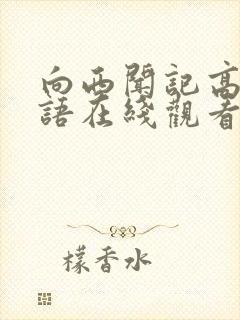 向西聞記高
語在綫觀看
檬香水